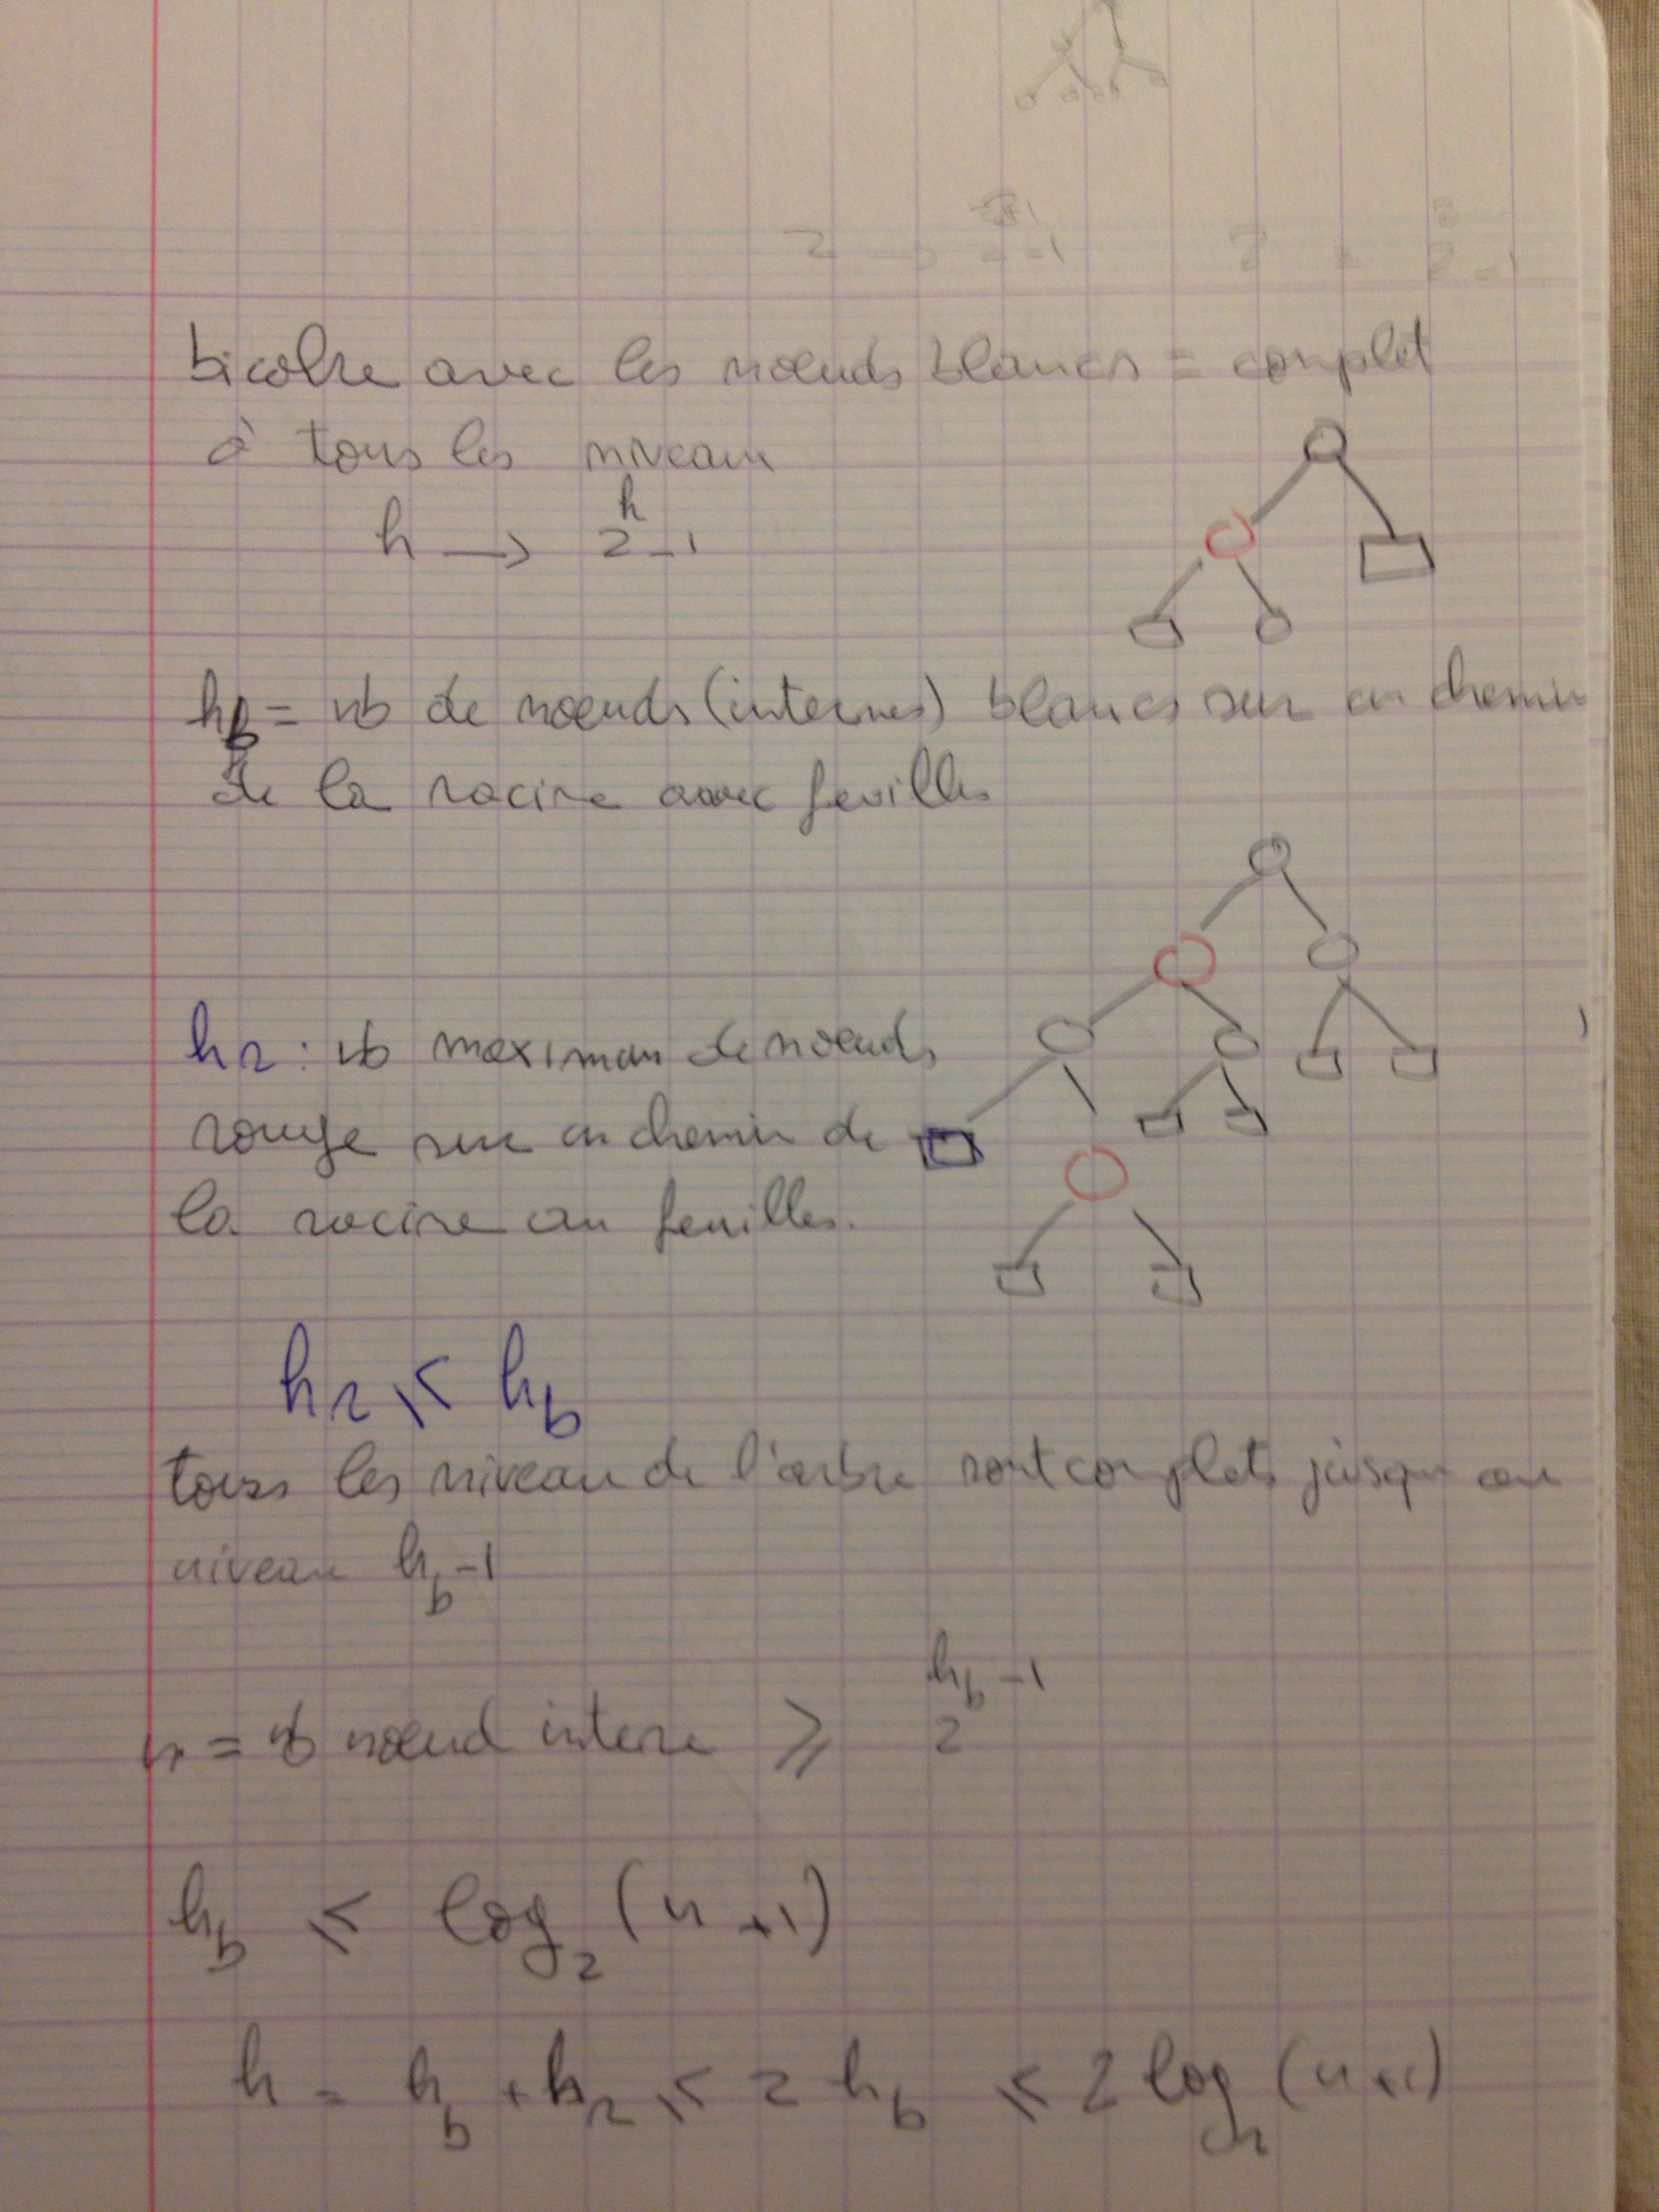 bicolre avec les nœuds blancs = complet
à tous les niveaux
h → 2^h - 1
hb = nb de nœuds (internes) blancs sur un chemin
de la racine avec feuilles
hr : nb maximum de nœuds
rouge sur un chemin de
la racine au feuilles.
hr ≤ hb
tous les niveau de l'arbre sont complets jusqu au
niveau hb-1
n = nb nœud interne ≥ 2^hb - 1
hb ≤ log2 (n+1)
h = hb + hr ≤ 2 hb ≤ 2 log2 (n+1)